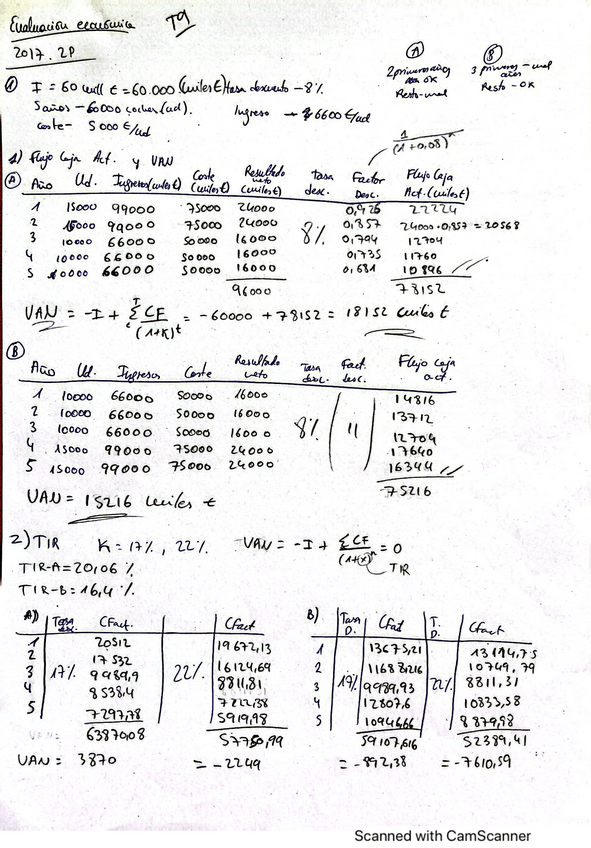 Evaluación económica T9
2017. 2P
① I = 60 mill € = 60.000 (miles €) tasa descuento - 8%
5 años - 60000 coches (ud.) Ingreso → 6600 €/ud
Coste - 5000 €/ud
Ⓐ Ⓑ
2 primeros años OK 3 primeros - mal años
Resto - mal Resto - OK
1/(1+0,08)^n
1) Flujo Caja Act. y VAN
Ⓐ Año Ud. Ingresos (miles €) Coste (miles €) Resultado neto (miles €) Tasa desc. Factor Desc. Flujo Caja Act. (miles €)
1 15000 99000 75000 24000 0,926 22224
2 15000 99000 75000 24000 8% 0,857 24000·0,857 = 20568
3 10000 66000 50000 16000 0,794 12704
4 10000 66000 50000 16000 0,735 11760
5 10000 66000 50000 16000 0,681 10896
96000 78152
VAN = -I + Σ CF/(1+K)^t = -60000 + 78152 = 18152 miles €
Ⓑ
Año Ud. Ingresos Coste Resultado neto Tasa desc. Fact. desc. Flujo Caja act.
1 10000 66000 50000 16000 14816
2 10000 66000 50000 16000 13712
3 10000 66000 50000 16000 8% " 12704
4 15000 99000 75000 24000 17640
5 15000 99000 75000 24000 16344
75216
VAN = 15216 miles €
2) TIR K = 17%, 22% VAN = -I + Σ CF/(1+(x))^n = 0
TIR
TIR-A = 20,06 %
TIR-B = 16,4 %
A) Tasa desc. CFact. CFact.
1 20512 19672,13
2 17532 16124,69
3 17% 9989,9 22% 8811,81
4 8538,4 7222,38
5 7297,78 5919,98
63870,08 57750,99
VAN = 3870 = -2249
B) Tasa D. CFact T. D. CFact
1 13675,21 13114,75
2 11688,216 10749,79
3 17% 9989,93 22% 8811,31
4 12807,6 10833,58
5 10946,66 8879,98
59107,616 52389,41
= -892,38 = -7610,59
Scanned with CamScanner